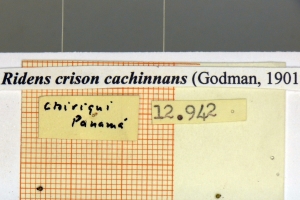 Ridens crison cachinnans (Godman, 1901
Chiriqui
Panamá
12.942